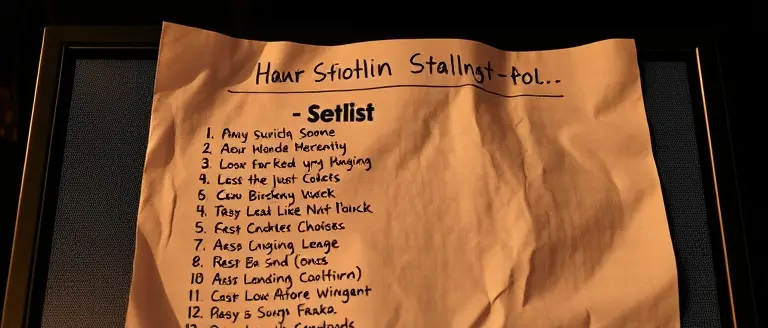 Haur Stiotlin Stallngt-fol..
- Setlist
1. Amy Suricly Soone
2. Aour Hlonde Merently
3. Loow forked yry Punging
4. Less the Just Colcts
6. Caw Birckny Vaeck
4. Tasy Leal Like Nnt Pauck
5. Fast Cndcles Choises
7. Aass Cinging Leage
8. Rast Ba Snd (ons
10 Aass Landing Caotfirn)
11. Cast Low Afore Wingant
12. Pasy s Sorgs Fraka.